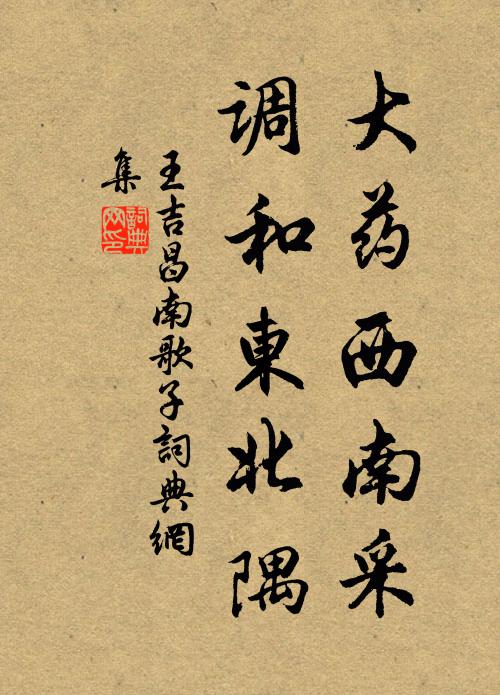 大药西南采
调和東北隅
王吉昌南歌子詞典網
集
詞典网印